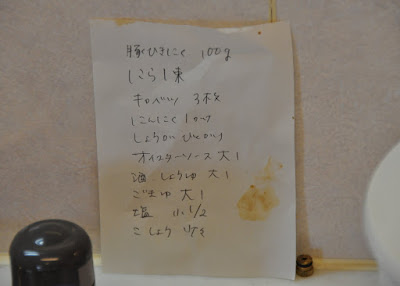 豚ひきにく 100g
にら 1束
キャベツ 3枚
にんにく 1かけ
しょうが ひとかけ
オイスターソース 大1
酒 しょうゆ 大1
ごまゆ 大1
塩 小1/2
こしょう 少々